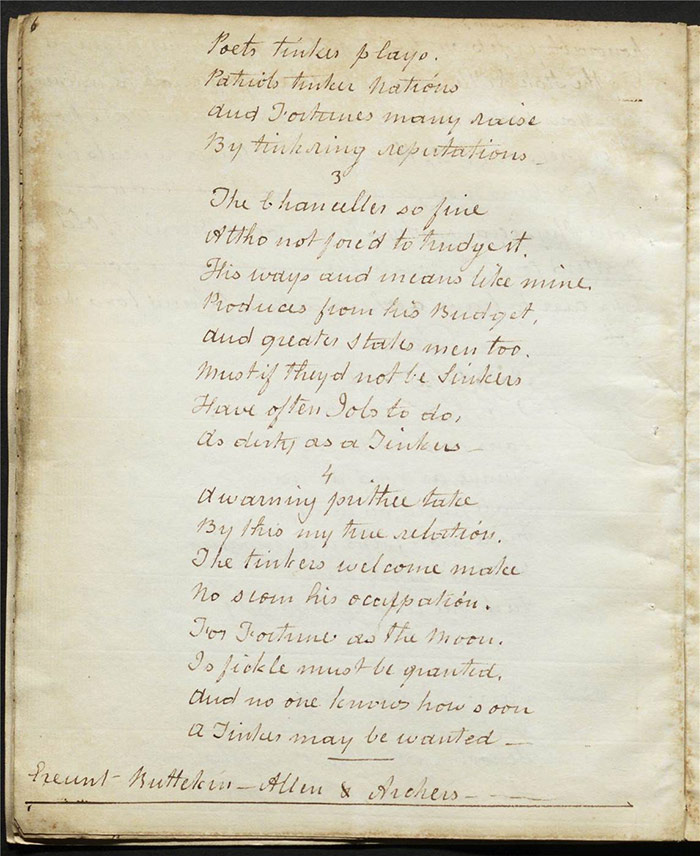 6
Poets tinker plays.
Patriots tinker Nations
And Fortunes many raise
By tinkring reputations
3
The Chanceller so fine
Altho not forc'd to trudge it.
His ways and means like mine.
Produces from his Budget,
And greater States men too.
Must if theyd not be Sinkers
Have often Jobs to do,
As dirty as a Tinkers —
4
A warning prithee take
By this my true relation.
The tinkers welcome make
No scorn his occupation.
For Fortune as the Moon.
Is fickle must be granted.
And no one knows how soon
A Tinker may be wanted —
Exeunt — Buttekin — Allen & Archers —